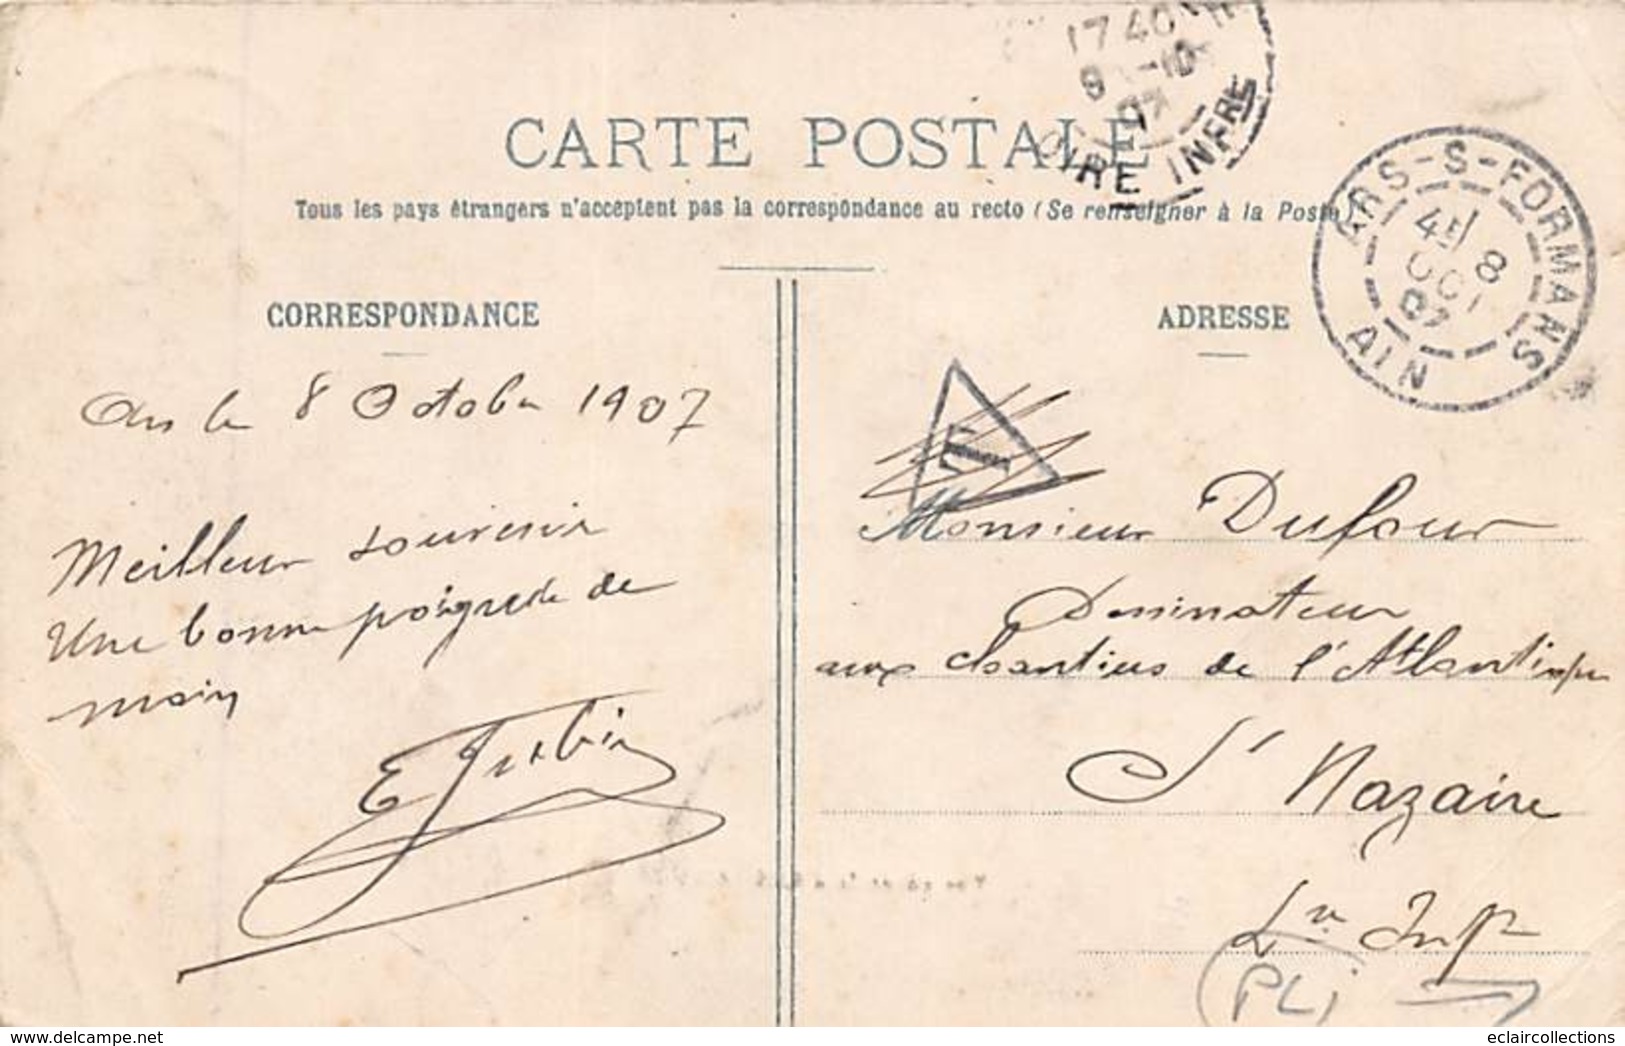 17 40
9 -10
07
OIRE INFRE
CARTE POSTALE
Tous les pays étrangers n'acceptent pas la correspondance au recto (Se renseigner à la Poste)
ARS-S-FORMANS
8
OCT
07
AIN
CORRESPONDANCE
Ars le 8 Octobre 1907
Meilleur souvenir
Une bonne poignée de
main
ADRESSE
T
Monsieur Dufour
Dessinateur
aux chantiers de l'Atlantique
St Nazaire
Lre Infre
PLi
delcampe.net
eclaircollections